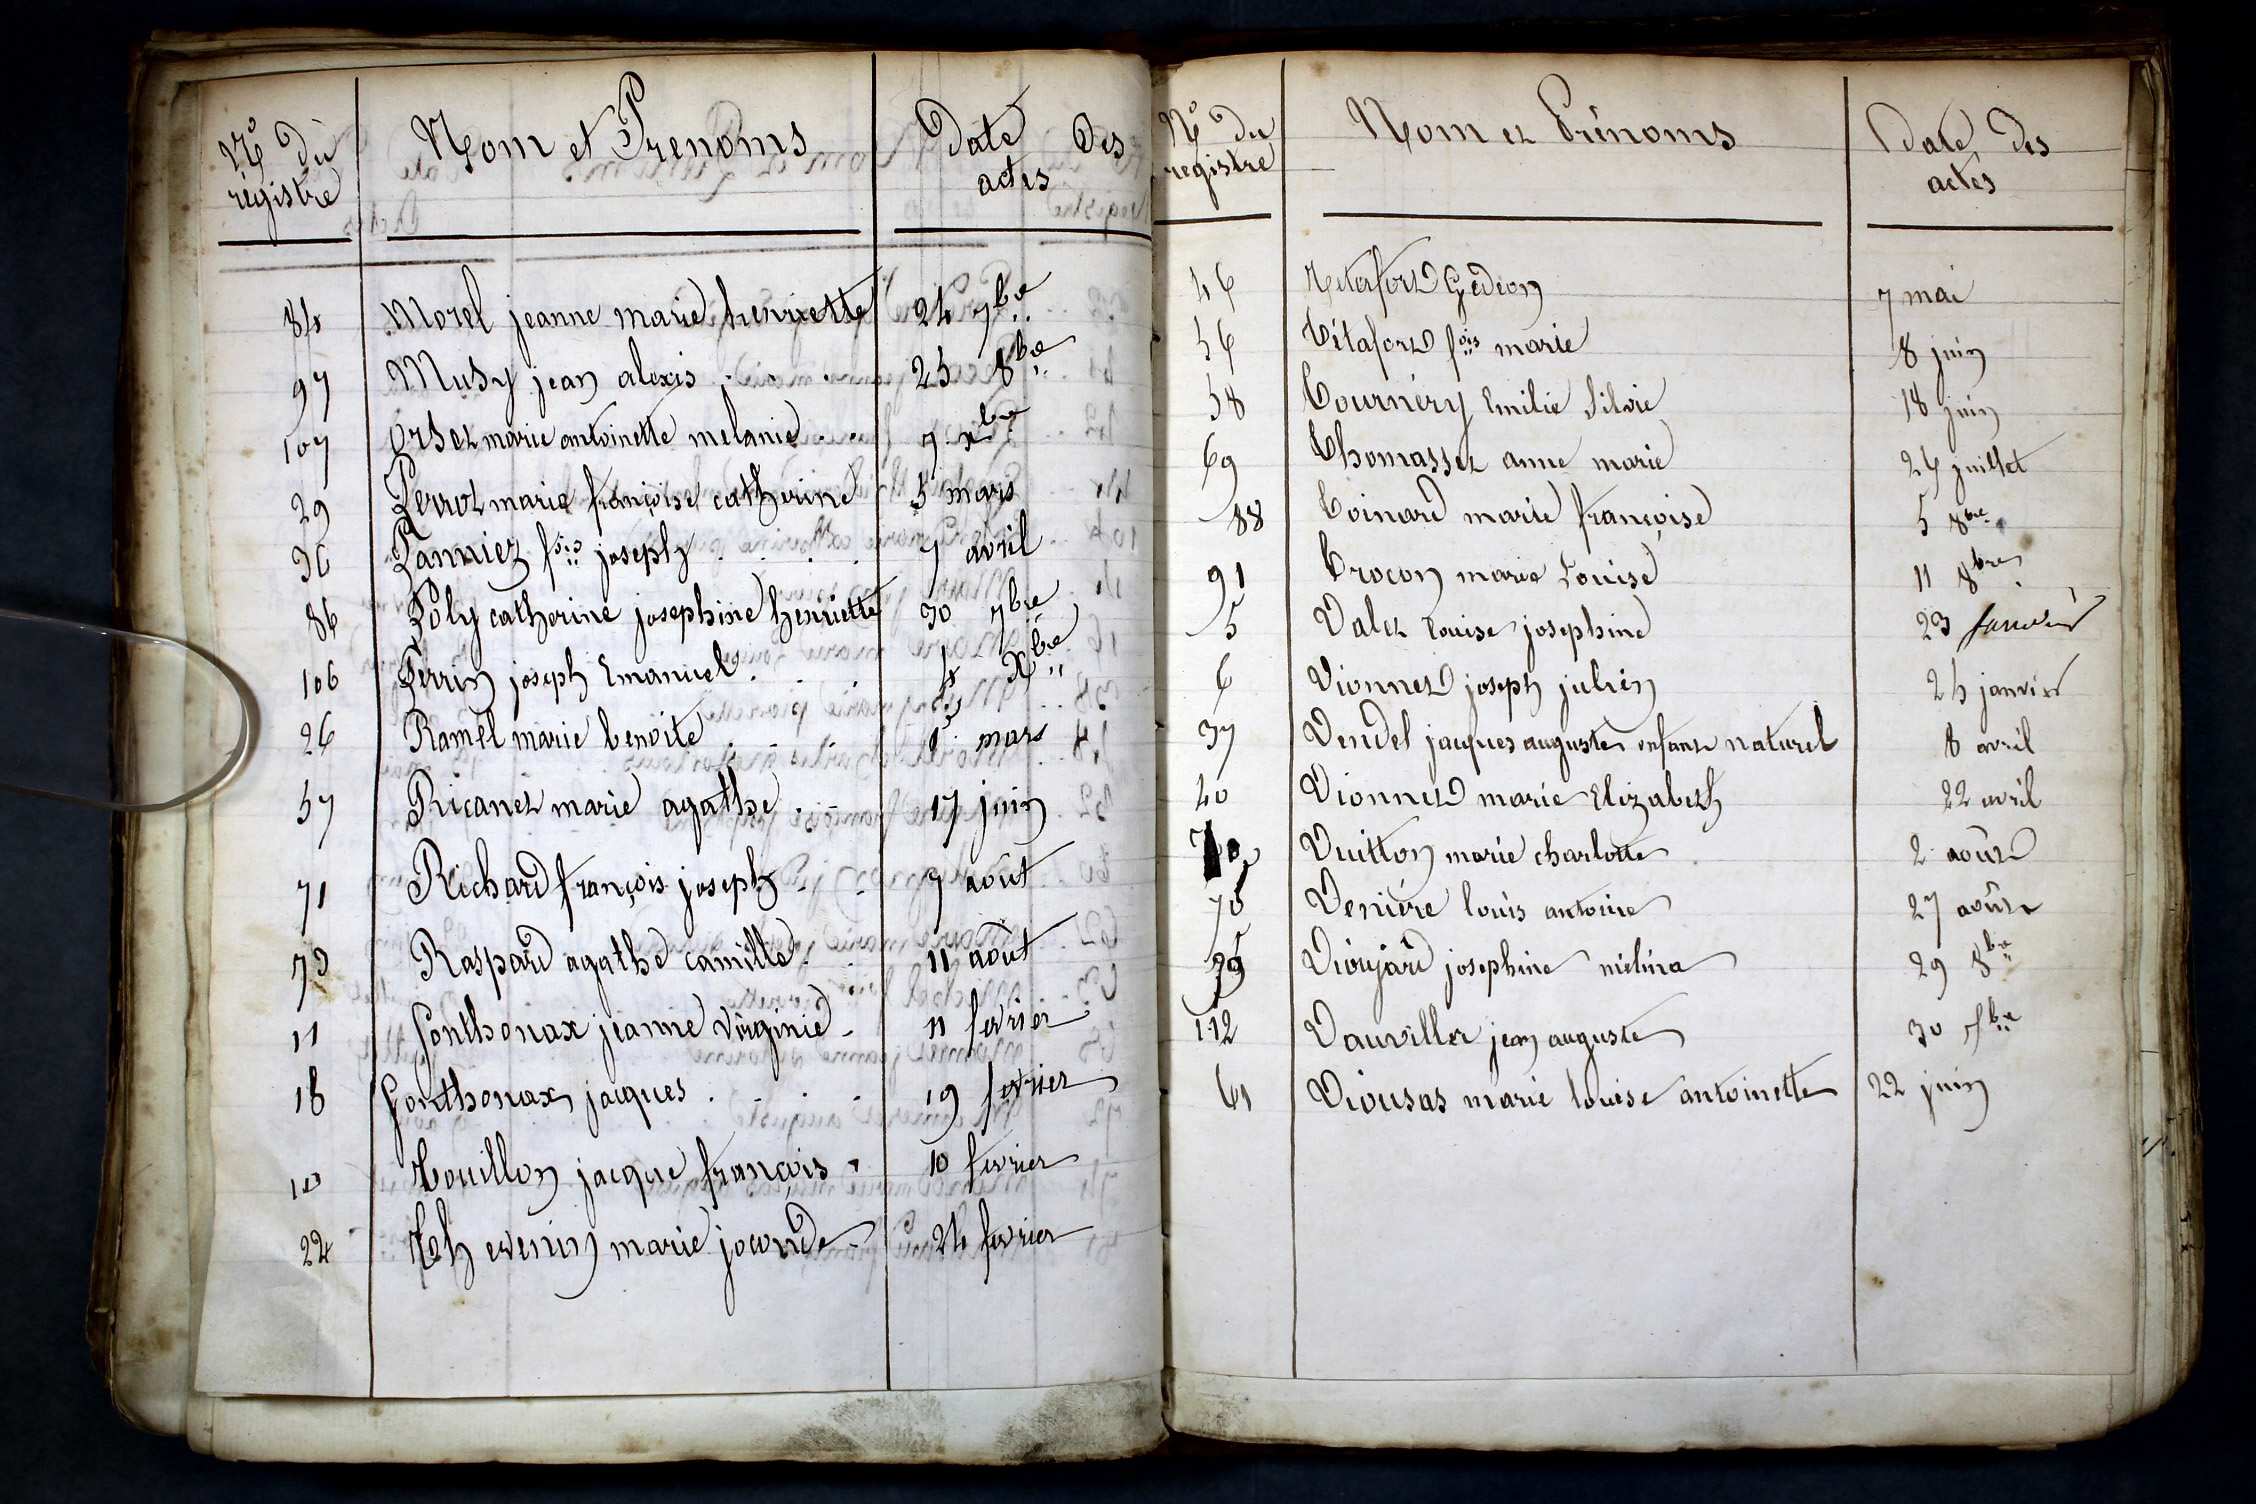 No du registre | Nom et Prenoms | Date des actes
84 Morel jeanne marie henriette 24 7bre
97 Musy jean alexis 25 8bre
107 Orset marie antoinette melanie 7 xbre
29 Perrot marie françoise catherine 5 mars
36 Panniez fois joseph 7 avril
86 Poly catherine josephine henriette 30 7bre
106 Perrin joseph Emanuel 4 Xbre
26 Ramel marie benoite 1 mars
57 Ricanet marie agathe 17 juin
71 Richard françois joseph 7 août
73 Raspard agathe camille 11 août
11 Ponthonax jeanne virginie 11 fevrier
18 Ponthonax jacques 19 fevrier
10 Touillon jacque françois 10 fevrier
22 Thevenin marie joconde 24 fevrier
No du registre | Nom et Prénoms | Date des actes
46 Titafort Gedeon 7 mai
56 Titafort fois marie 8 juin
58 Tournery Emilie Silvie 18 juin
69 Thomasset anne marie 26 juillet
88 Toinard marie françoise 5 8bre
91 Trocon marie Louise 11 8bre
5 Valet Louise josephine 23 janvier
6 Vionnet joseph julien 25 janvier
37 Vendel jacques auguste enfant naturel 8 avril
40 Vionnet marie Elizabeth 22 avril
70 Vuitton marie charlotte 2 août
75 Verriére louis antoine 27 août
99 Vioujard josephine mélina 29 8bre
112 Vauviller jean auguste 30 xbre
61 Viousas marie louise antoinette 22 juin